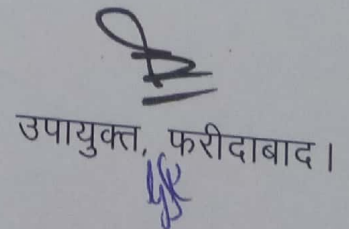 उपायुक्त, फरीदाबाद।